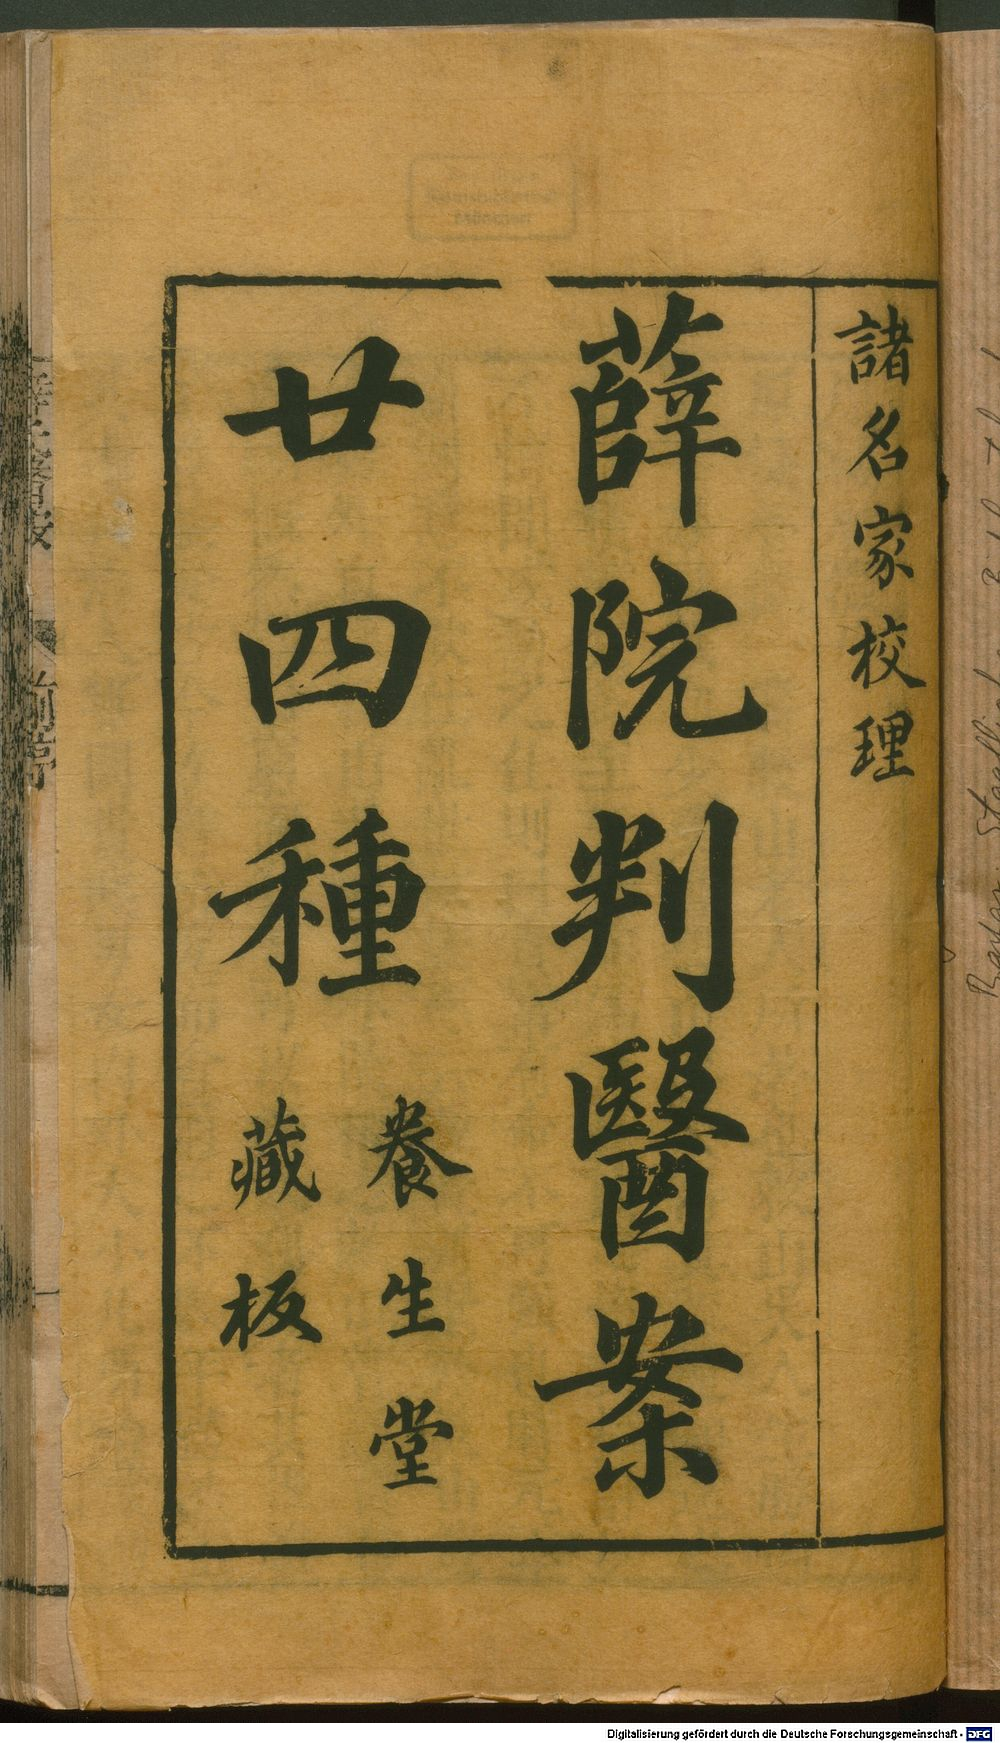 諸名家校理
薛院判醫案
廿四種
養生堂
藏板
Digitalisierung gefördert durch die Deutsche Forschungsgemeinschaft - DFG